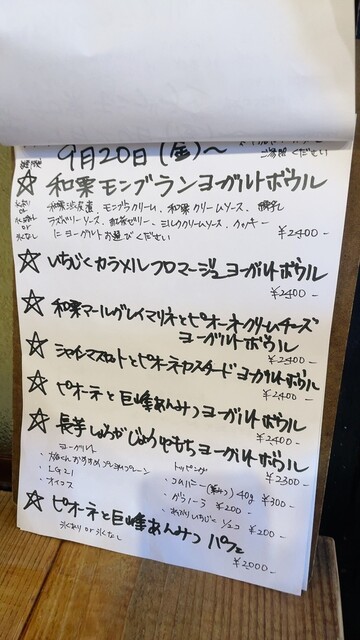 ご容赦ください
9月20日(金)〜
☆ 和栗モンブランヨーグルトボウル
和栗渋皮煮、モンブランクリーム、和栗クリームソース、
ラズベリーソース、紅茶ゼリー、ミルククリームソース、クッキー
にヨーグルトお選びください
¥2400-
☆ いちじくカラメルフロマージュヨーグルトボウル
¥2400-
☆ 和栗マールグレイマリネとピオーネクリームチーズ
ヨーグルトボウル
¥2400-
☆ シャインマスカットとピオーネカスタードヨーグルトボウル
¥2400-
☆ ピオーネと巨峰あんみつヨーグルトボウル
¥2400-
☆ 長芋しょうがじょうゆもちヨーグルトボウル
¥2300-
ヨーグルト
・LG21
・オイコス
トッピング
40g ¥300-
・グラノーラ ¥200-
1/2コ ¥200-
☆ ピオーネと巨峰あんみつパフェ
氷あり or 氷なし
¥2000-